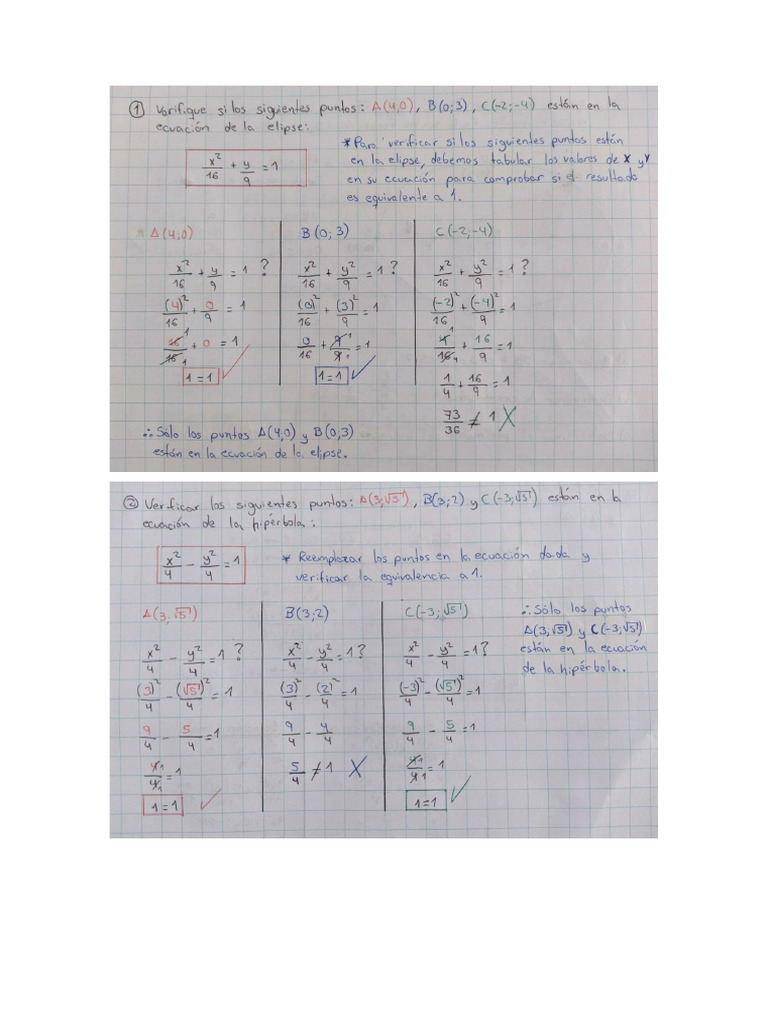 ① Verifique si los siguientes puntos: A(4,0), B(0;3), C(-2;-4) están en la
ecuación de la elipse:
x²/16 + y/9 = 1
* Para verificar si los siguientes puntos están
en la elipse, debemos tabular los valores de x y y
en su ecuación para comprobar si el resultado
es equivalente a 1.
A(4;0)
x²/16 + y/9 = 1 ?
(4)²/16 + 0/9 = 1
16/16 + 0 = 1
1 = 1 ✓
B(0;3)
x²/16 + y²/9 = 1 ?
(0)²/16 + (3)²/9 = 1
0/16 + 9/9 = 1
1 = 1 ✓
C(-2;-4)
x²/16 + y²/9 = 1 ?
(-2)²/16 + (-4)²/9 = 1
4/16 + 16/9 = 1
1/4 + 16/9 = 1
73/36 ≠ 1 X
∴ Sólo los puntos A(4,0) y B(0;3)
están en la ecuación de la elipse.
② Verificar los siguientes puntos: A(3,√5), B(3;2) y C(-3;√5) están en la
ecuación de la hipérbola:
x²/4 - y²/4 = 1
* Reemplazar los puntos en la ecuación dada y
verificar la equivalencia a 1.
A(3,√5)
x²/4 - y²/4 = 1 ?
(3)²/4 - (√5)²/4 = 1
9/4 - 5/4 = 1
4/4 = 1
1 = 1 ✓
B(3;2)
x²/4 - y²/4 = 1 ?
(3)²/4 - (2)²/4 = 1
9/4 - 4/4
5/4 ≠ 1 X
C(-3;√5)
x²/4 - y²/4 = 1 ?
(-3)²/4 - (√5)²/4 = 1
9/4 - 5/4 = 1
4/4 = 1
1=1 ✓
∴ Sólo los puntos
A(3,√5) y C(-3;√5)
están en la ecuación
de la hipérbola.